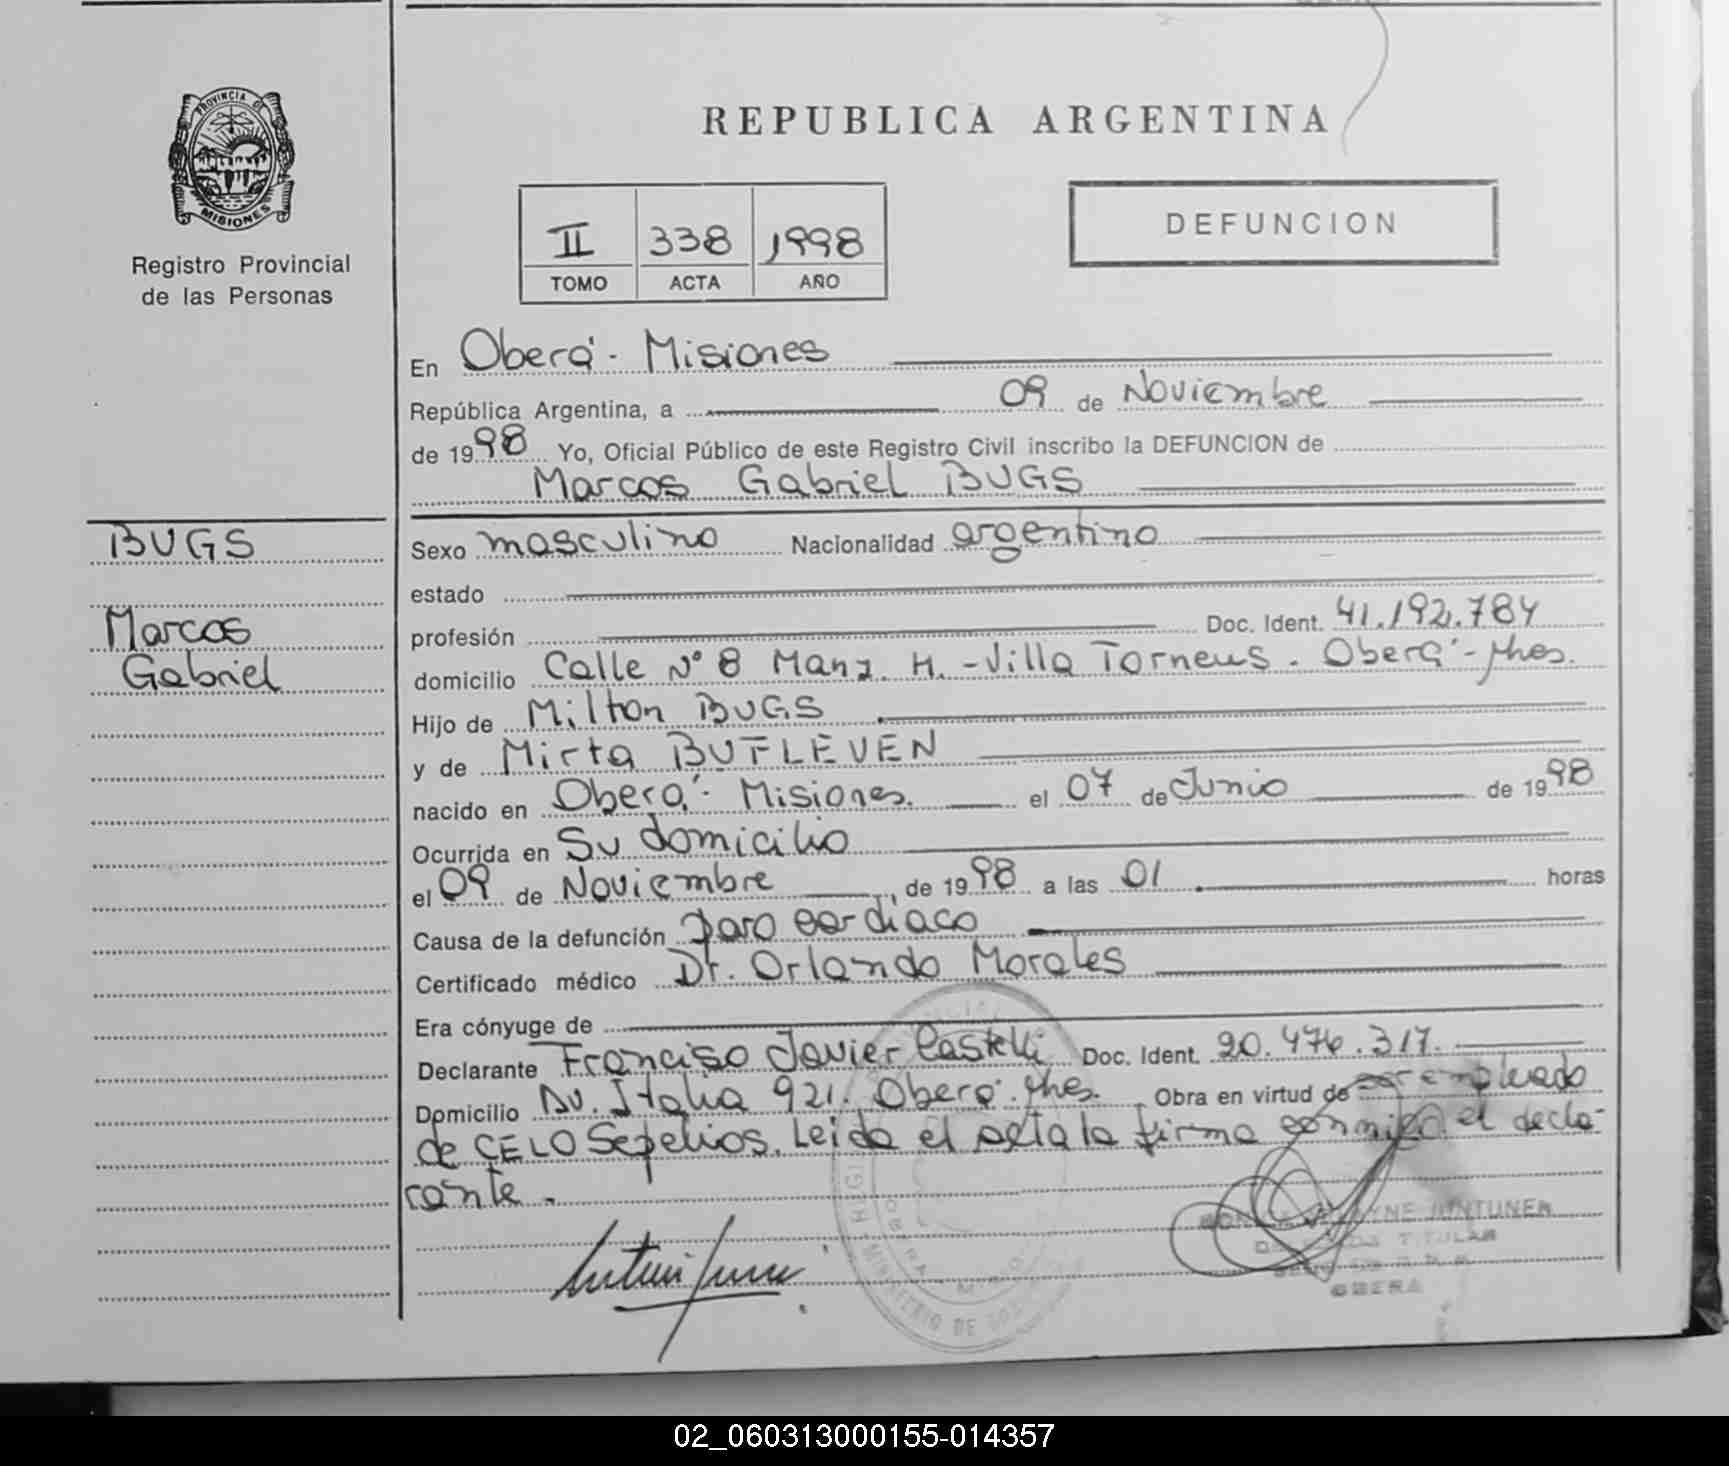 PROVINCIA DE
MISIONES
Registro Provincial
de las Personas
REPUBLICA ARGENTINA
II 338 1998
TOMO ACTA AÑO
DEFUNCION
En Oberá - Misiones
República Argentina, a 09 de Noviembre
de 1998 Yo, Oficial Público de este Registro Civil inscribo la DEFUNCION de
Marcos Gabriel BUGS
BUGS
Marcos
Gabriel
Sexo masculino Nacionalidad argentino
estado
profesión Doc. Ident. 41.192.784
domicilio Calle Nº 8 Manz. H. - Villa Torneus. Oberá - Mnes.
Hijo de Milton BUGS
y de Mirta BUFLEVEN
nacido en Oberá - Misiones. el 07 de Junio de 1998
Ocurrida en Su domicilio
el 09 de Noviembre de 1998 a las 01 horas
Causa de la defunción paro cardiaco
Certificado médico Dr. Orlando Morales
Era cónyuge de
Declarante Franciso Javier Castelli Doc. Ident. 20.476.317.
Domicilio Av. Italia 921. Oberá - Mnes. Obra en virtud de ser empleado
de CELO Sepelios. Leida el acta la firma conmigo el decla-
rante.
TITULAR
OBERA
02_060313000155-014357